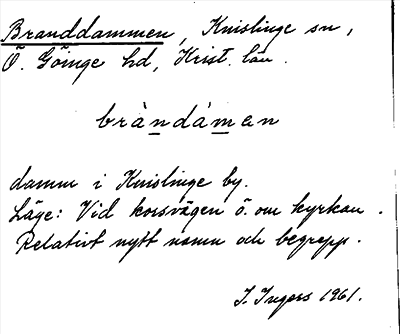 Branddammen, Knislinge sn,
Ö. Göinge hd, Krist. län.
bràndámen
damm i Knislinge by.
Läge: Vid korsvägen ö. om kyrkan.
Relativt nytt namn och begrepp.
I. Ingers 1961.